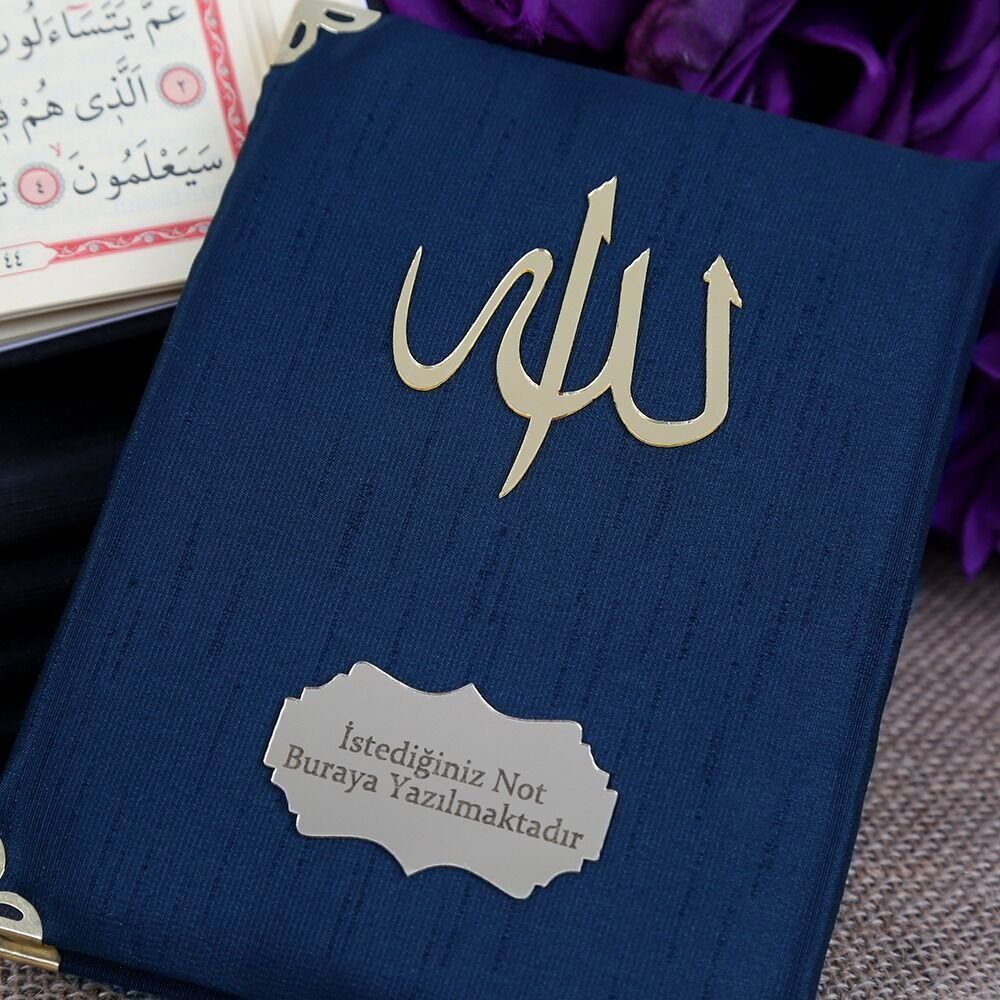 عَمَّ يَتَسَاءَلُونَ
٢ الَّذِى هُمْ
سَيَعْلَمُونَ ٤
٤٤
الله
İstediğiniz Not
Buraya Yazılmaktadır